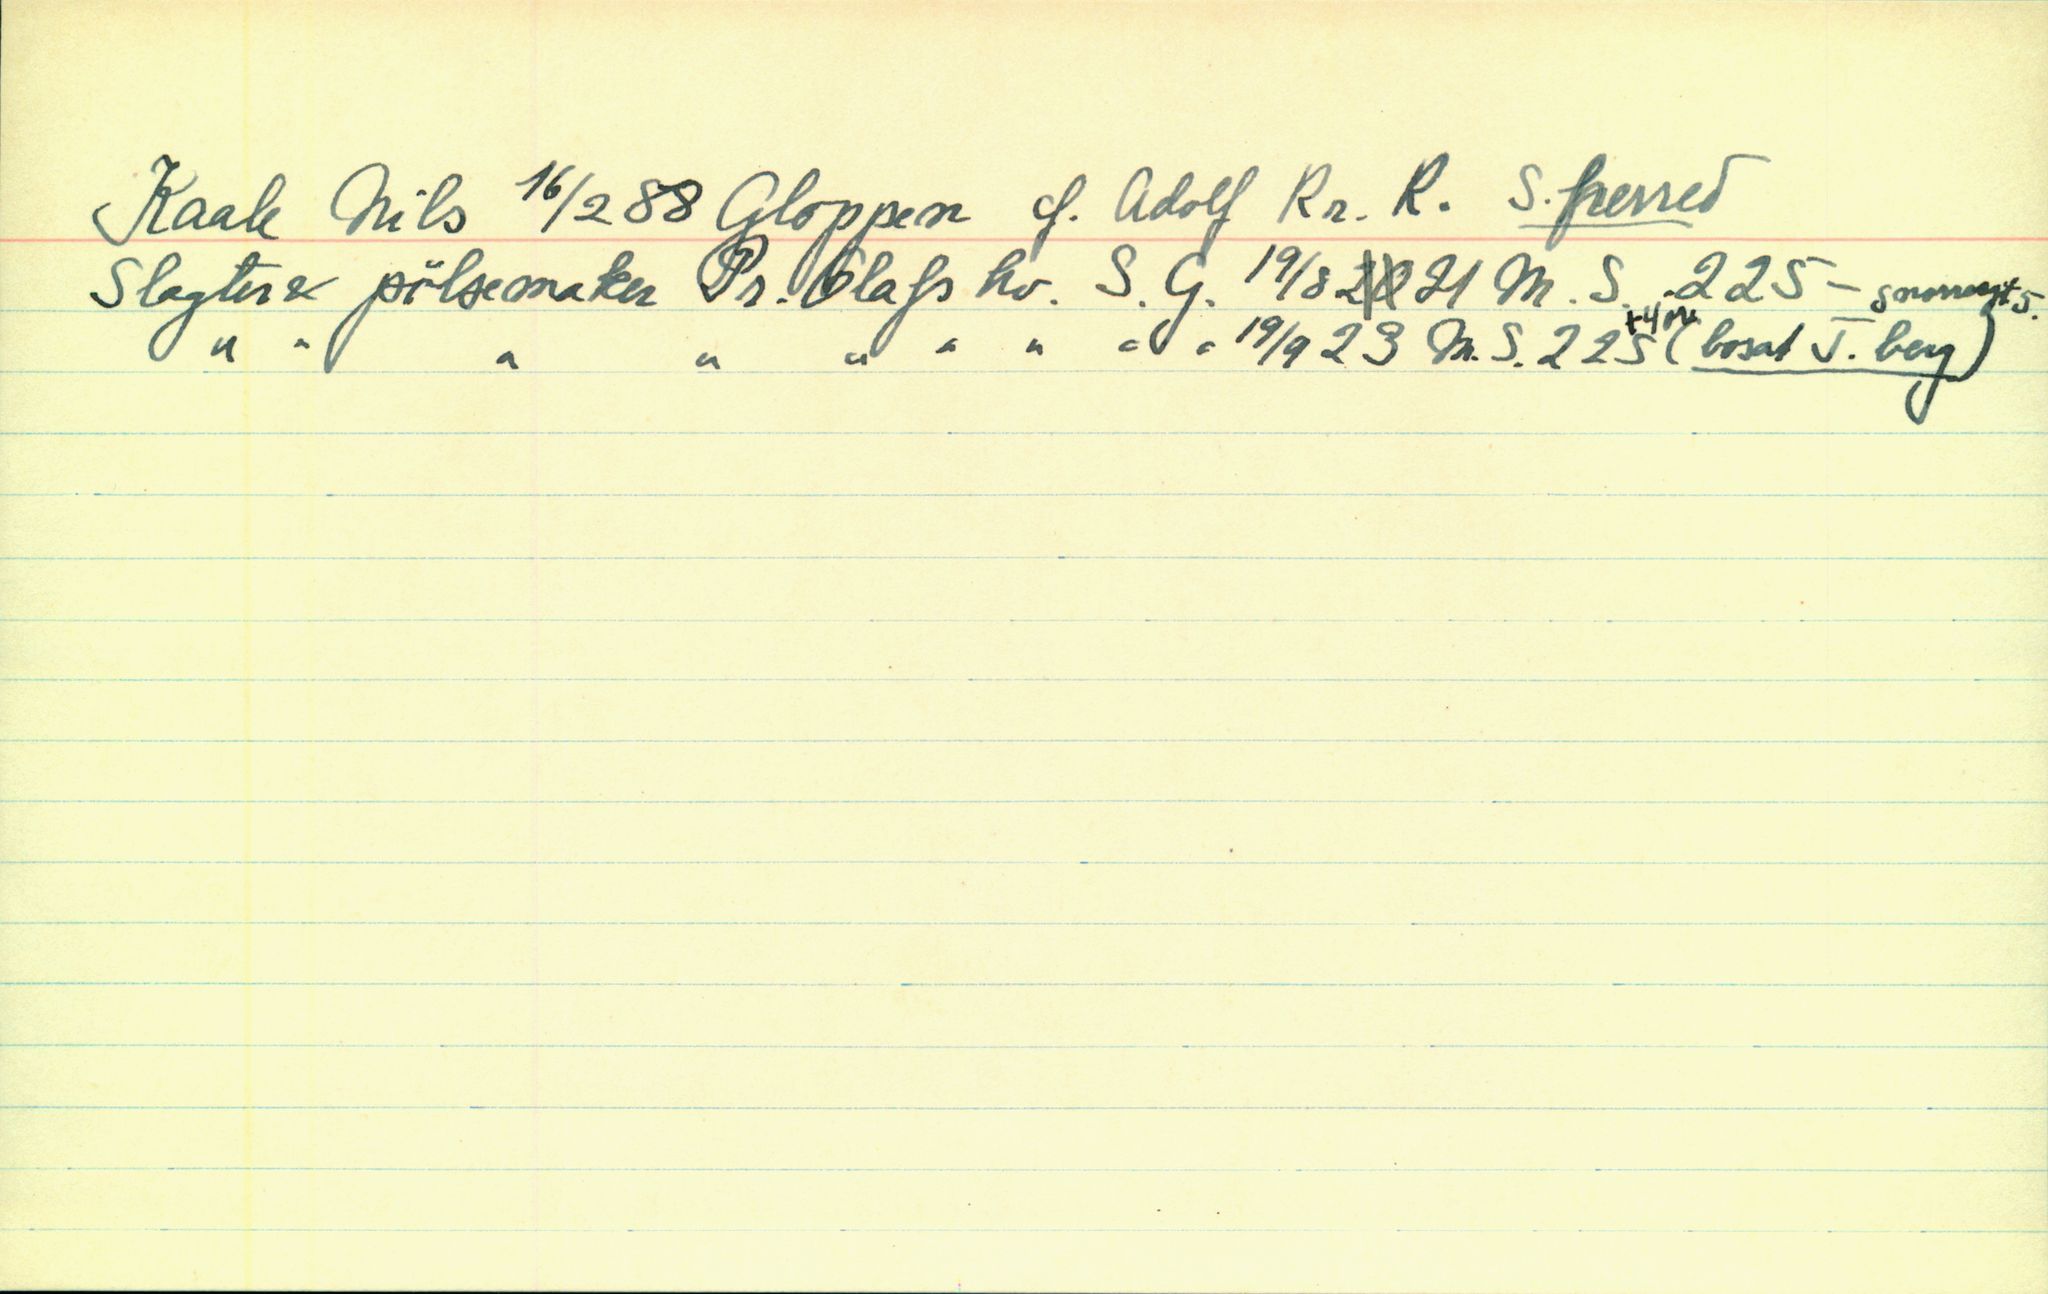 Kaale Nils 16/2 88 Gloppen f. Adolf Kr. R. S. herred
Slagter & pölsemaker Pr. Olafs kv. S. G. 19/8 21 M. S. 225 - Snorresgt 5.
" " " " " " " " " 19/9 23 M. S. 225 +4 M. (bosat T. berg)